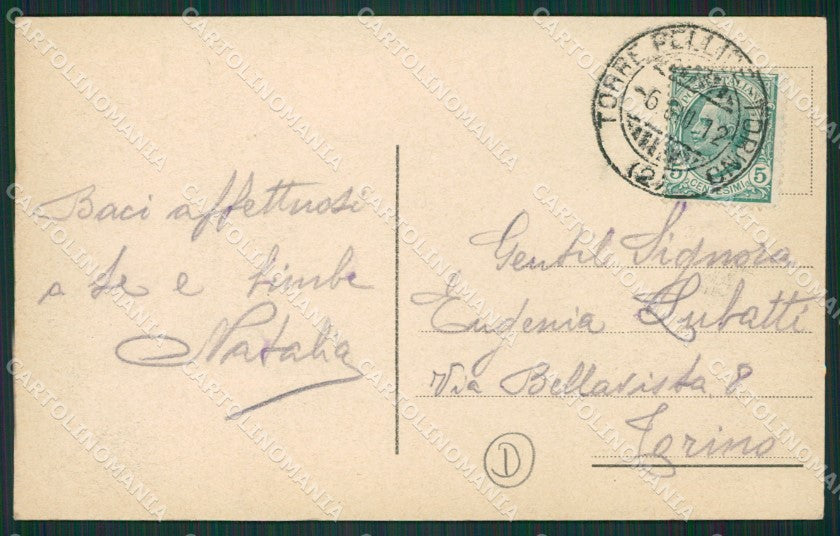 Baci affettuosi
a te e bimbe
Natalia
TORRE PELLICE TORINO
-6 12
(2)
5
CENTESIMI
Gentil Signora
Eugenia Lubatti
Via Bellavista 8
Torino
D
CARTOLINOMANIA